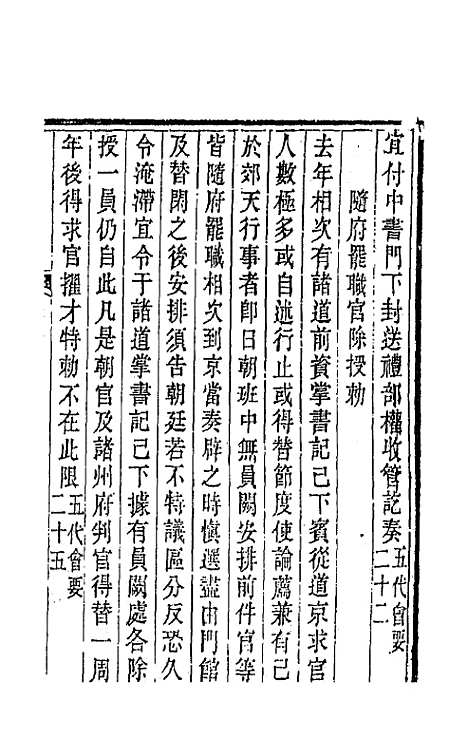 宜付中書門下封送禮部權收管訖奏五代會要二十二
隨府罷職官除授勑
去年相次有諸道前資掌書記已下賓從道京求官
人數極多或自述行止或得替節度使論薦兼有已
於郊天行事者卽日朝班中無員闕安排前件官等
皆隨府罷職相次到京當奏辟之時慎選盡由門館
及替閑之後安排須告朝廷若不特議區分反恐久
令淹滯宜令于諸道掌書記已下據有員闕處各除
授一員仍自此凡是朝官及諸州府判官得替一周
年後得求官擢才特勑不在此限五代會要二十五